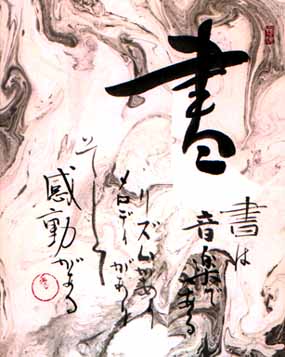 書
書は
音楽である
リズムがあり
メロディがあり
そして
感動がある